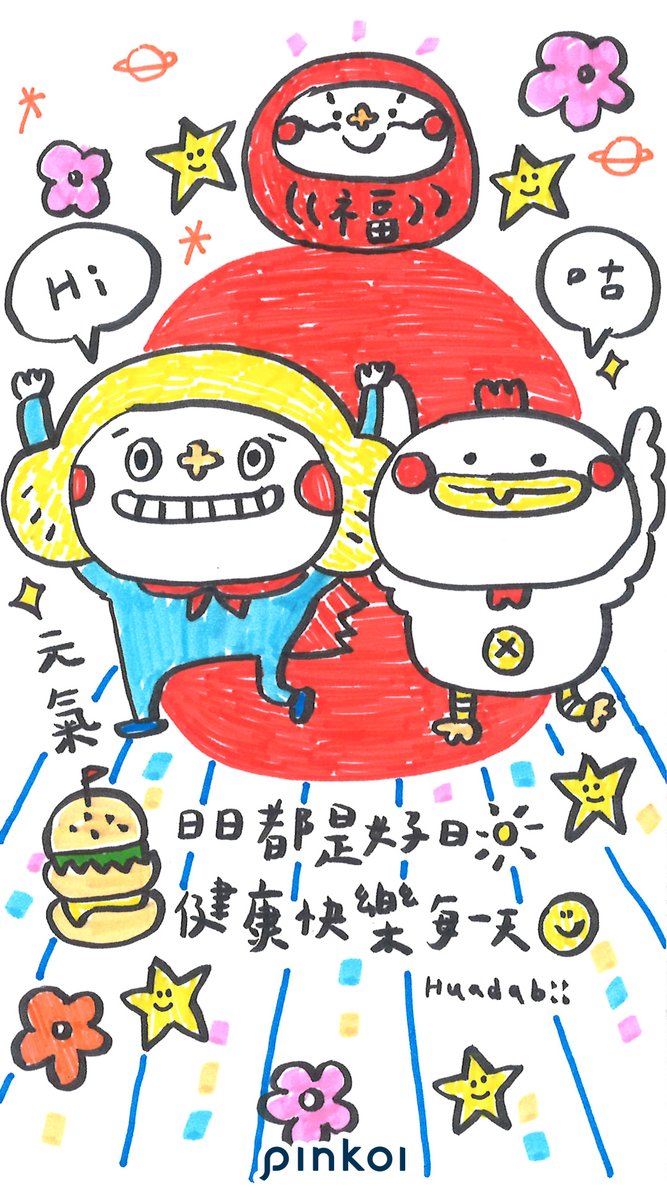 福
Hi
咕
元氣
日日都是好日
健康快樂每一天
Huadabii
pinkoi